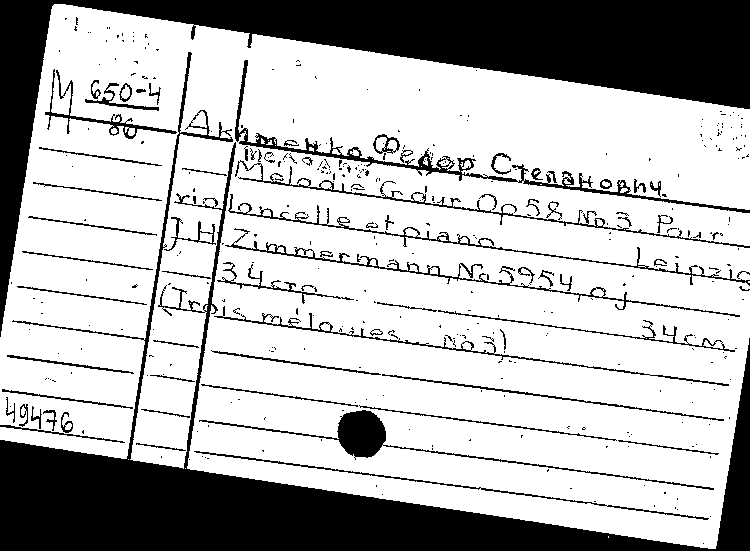 М 650-4
86.
Акименко, Федор Степанович.
Мелодия.
Melodie G dur Op 58, No 3. Pour
violoncelle et piano. Leipzig
J. H. Zimmermann, No 5954, o. j
3,4 стр 34 см
(Trois mélodies... No 3)
49476.